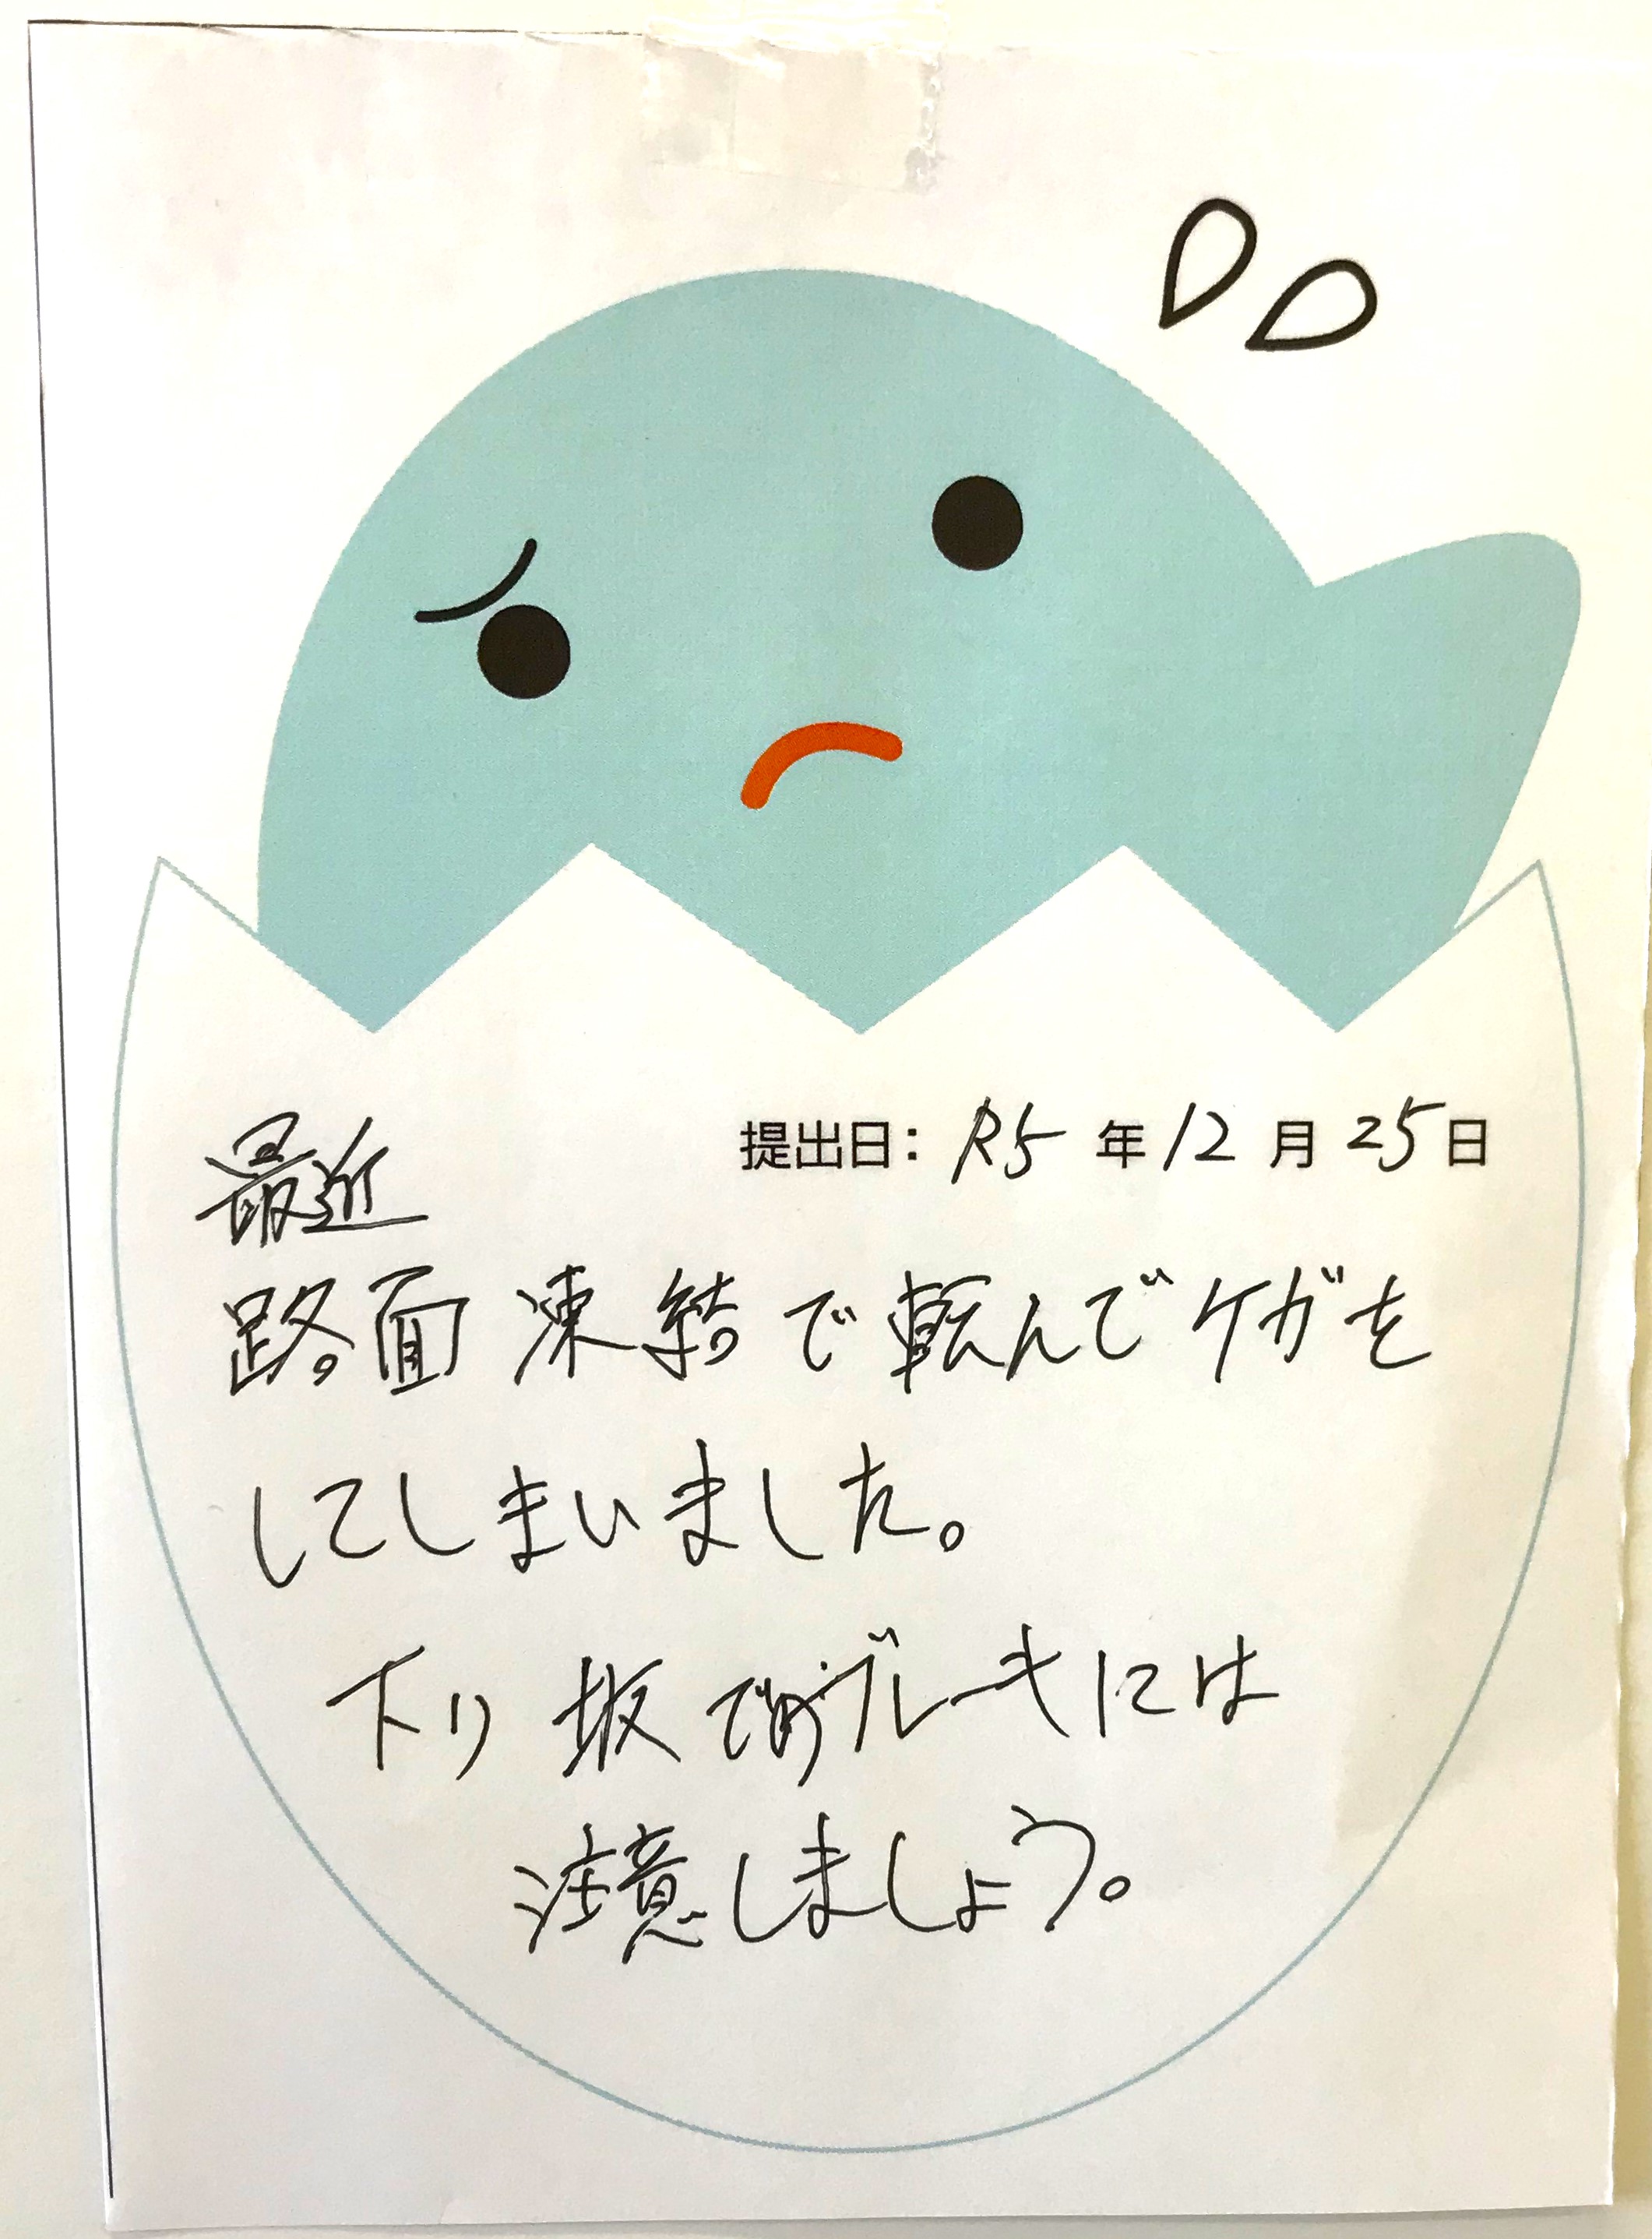 提出日: R5年12月25日
最近
路面凍結で転んでケガを
してしまいました。
下り坂でのブレーキには
注意しましょう。